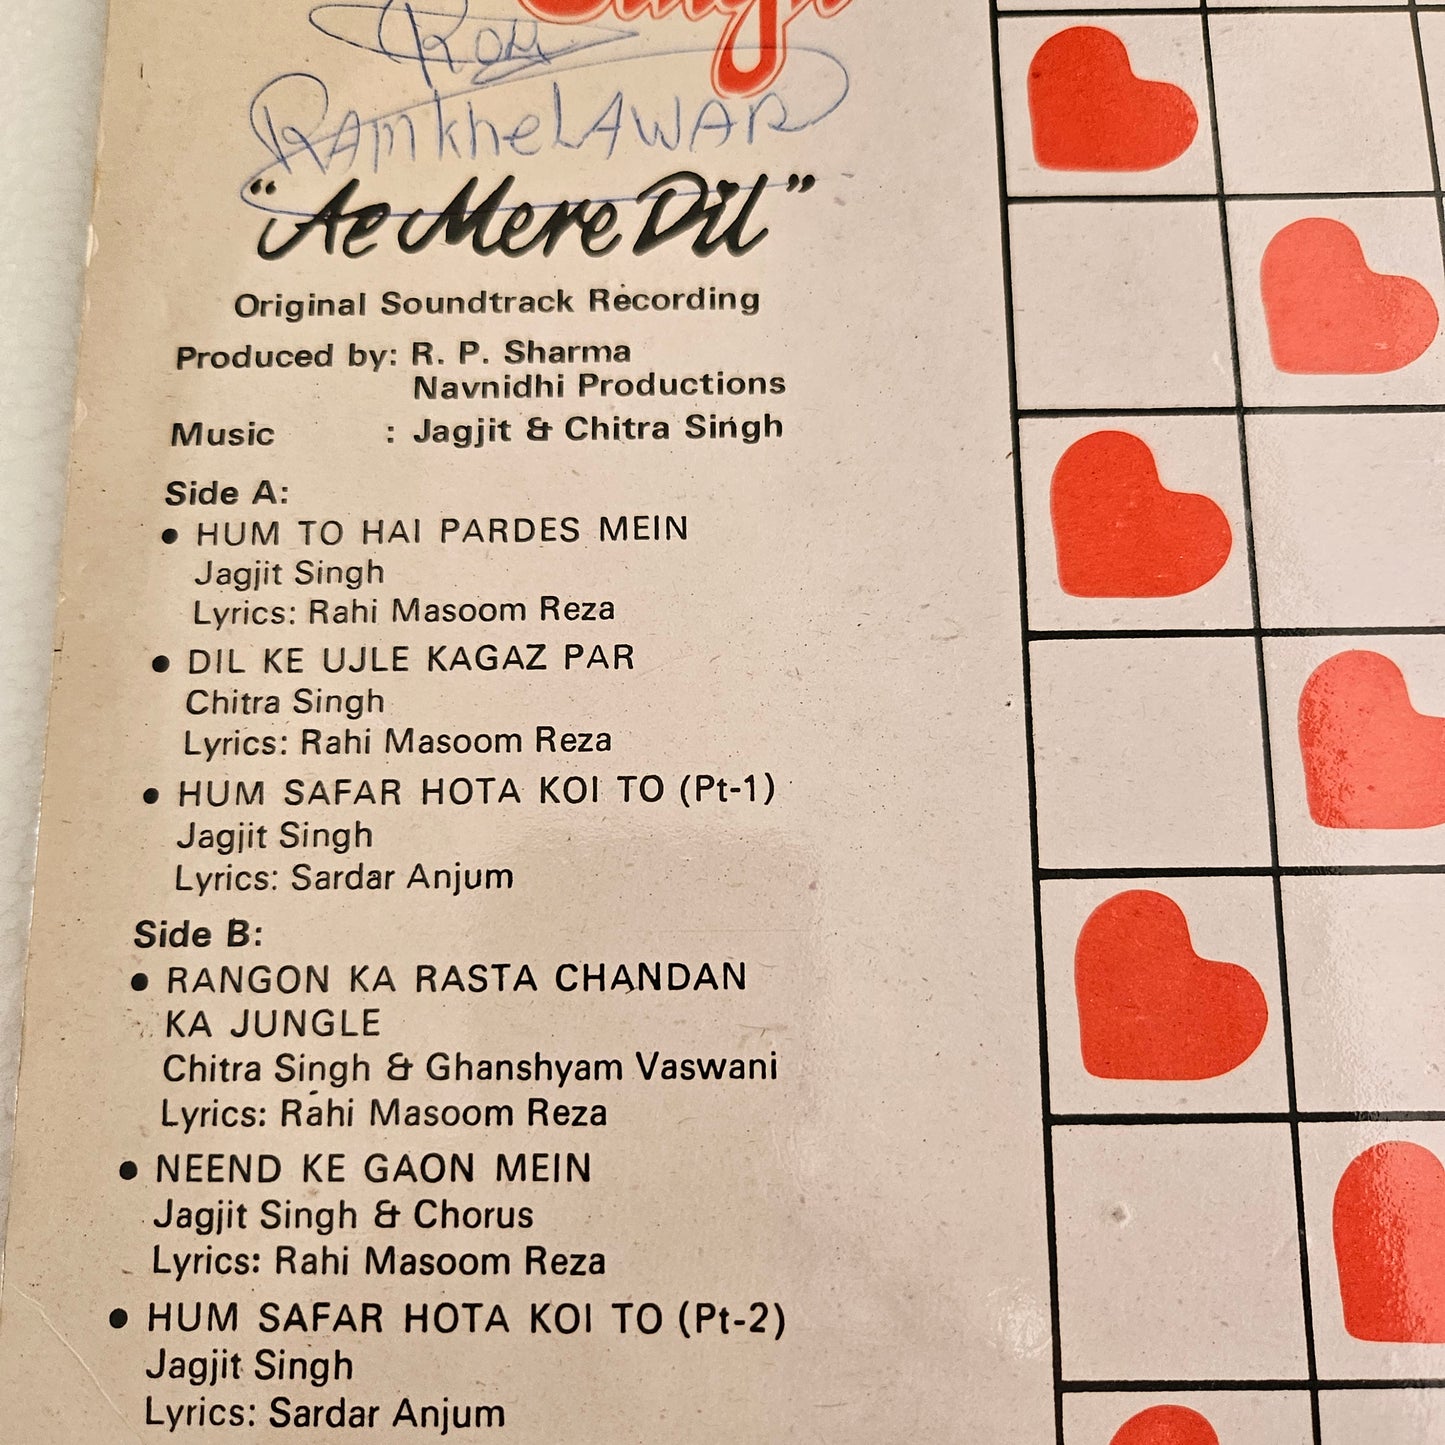 Singh
RAMKHELAWAR
"Ae Mere Dil"
Original Soundtrack Recording
Produced by: R. P. Sharma
Navnidhi Productions
Music : Jagjit & Chitra Singh
Side A:
• HUM TO HAI PARDES MEIN
Jagjit Singh
Lyrics: Rahi Masoom Reza
• DIL KE UJLE KAGAZ PAR
Chitra Singh
Lyrics: Rahi Masoom Reza
• HUM SAFAR HOTA KOI TO (Pt-1)
Jagjit Singh
Lyrics: Sardar Anjum
Side B:
• RANGON KA RASTA CHANDAN
KA JUNGLE
Chitra Singh & Ghanshyam Vaswani
Lyrics: Rahi Masoom Reza
• NEEND KE GAON MEIN
Jagjit Singh & Chorus
Lyrics: Rahi Masoom Reza
• HUM SAFAR HOTA KOI TO (Pt-2)
Jagjit Singh
Lyrics: Sardar Anjum